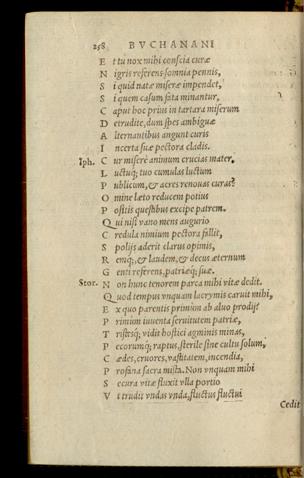 258 BVCHANANI
E t tu nox mihi conscia curæ
N igris referens somnia pennis,
S i quid natæ miseræ impendet,
S i quem casum fata minantur,
C aput hoc prius in tartara miserum
D etrudite, dum spes ambiguæ
A lternantibus angunt curis
I ncerta suæ pectora cladis.
Iph. C ur miseré animum crucias mater,
L uctuq; tuo cumulas luctum
P ublicum, & acres renouas curas?
O mine læto reducem potius
P ositis questibus excipe patrem.
Q ui nisi vano mens augurio
C redula nimium pectora fallit,
S polijs aderit clarus opimis,
R emq;, & laudem, & decus æternum
G enti referens, patriæq; suæ.
Stor. N on hunc tenorem parca mihi vitæ dedit.
Q uod tempus vnquam lacrymis caruit mihi,
E x quo parentis primùm ab aluo prodij?
P rimùm iuuenta seruitutem patriæ,
T ristesq; vidit hostici agminis minas,
P ecorumq; raptus, sterile sine cultu solum,
C ædes, cruores, vastitatem, incendia,
P rofana sacra mista. Non vnquam mihi
S ecura vitæ fluxit vlla portio
V t trudit vndas vnda, fluctus fluctui
Cedit